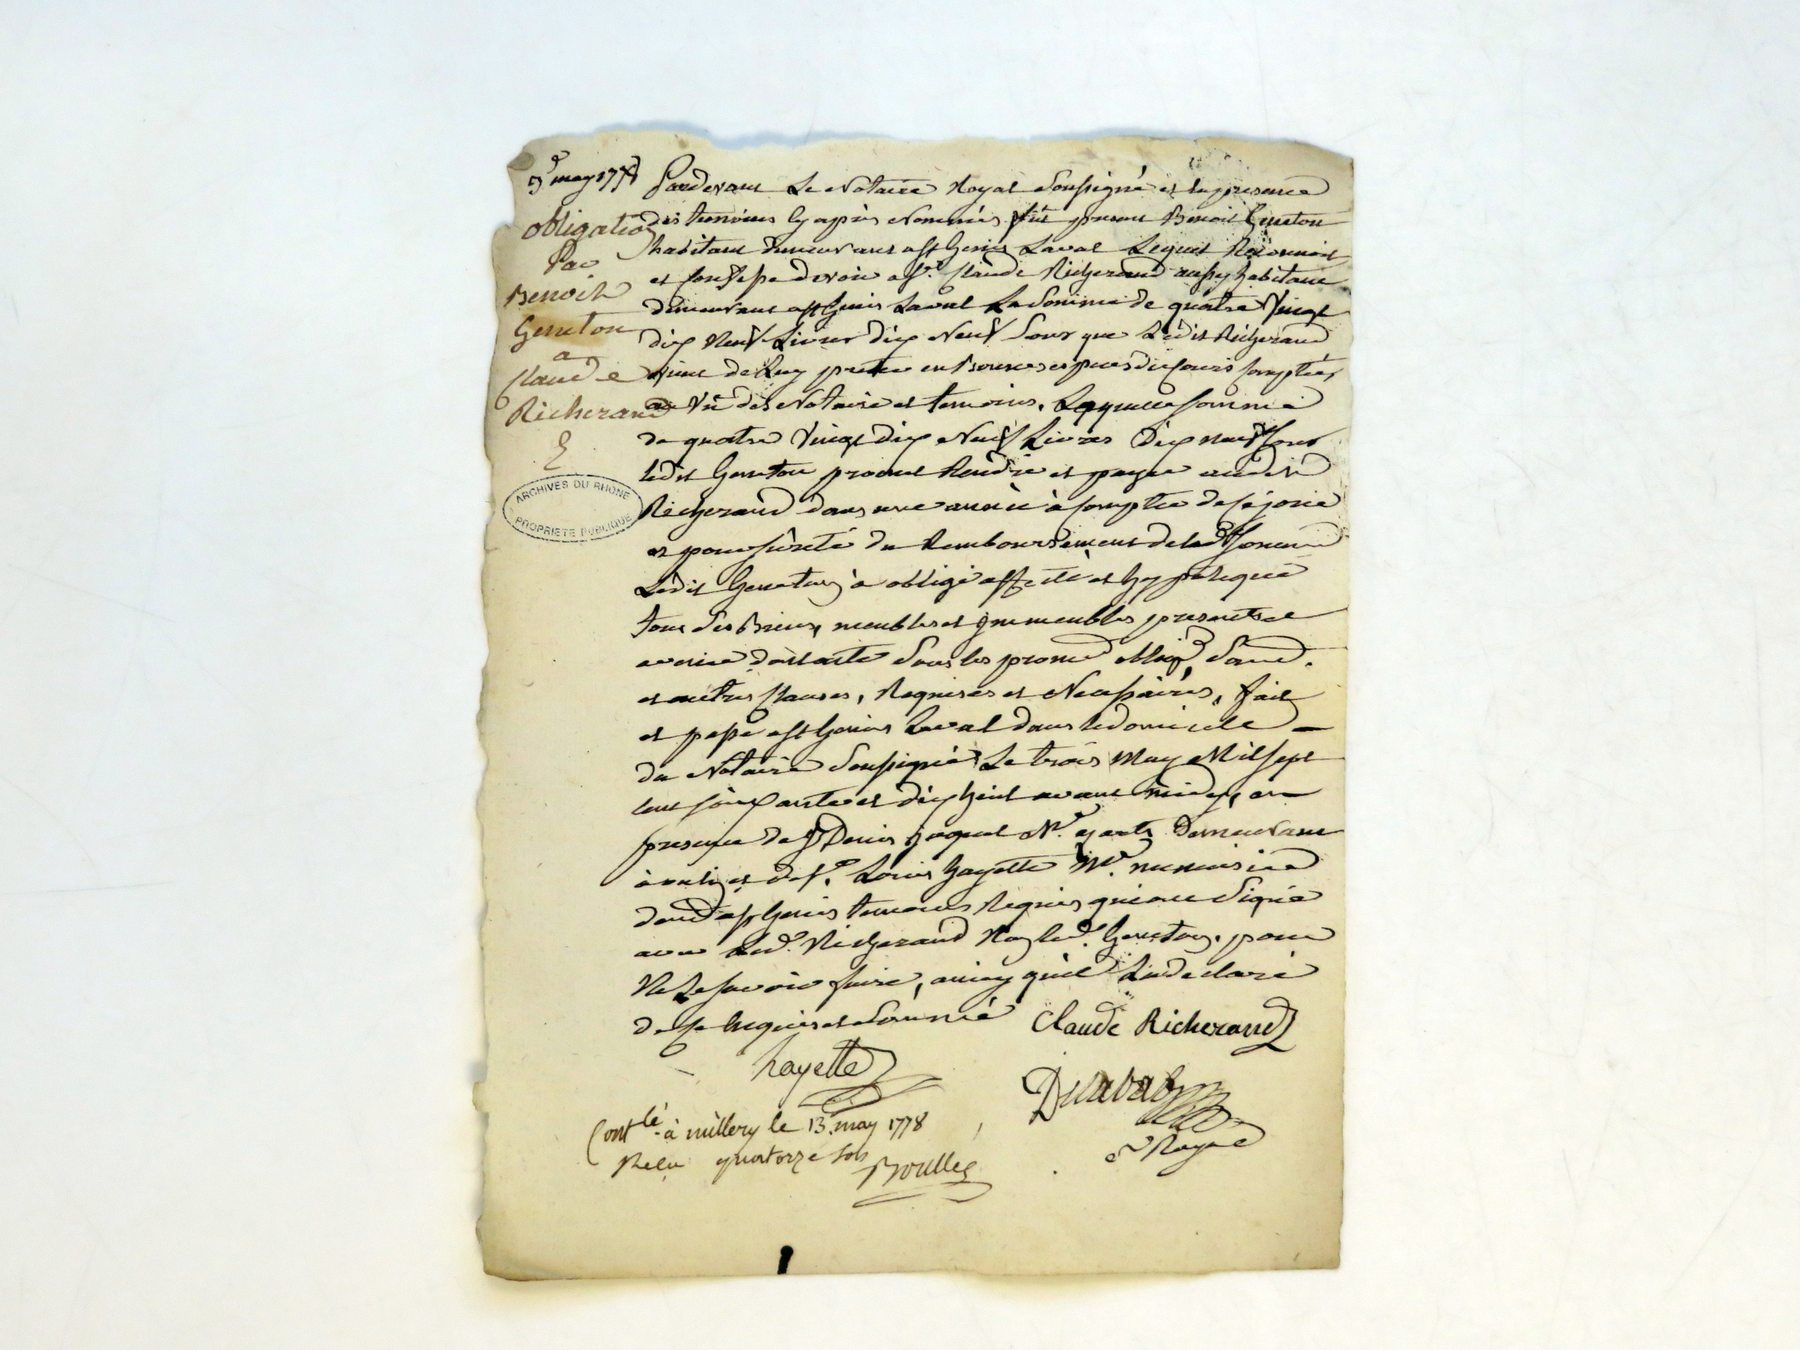 3e may 1778
obligation
Par
Benoit
Geneton
a
Claude
Richerand
ARCHIVES DU RHONE
PROPRIETE PUBLIQUE
Pardevant Le Notaire Royal Soussigné et en presence
des temoins cy après Nommés fut present Benoit Geneton
habitant demeurant a St Genis Laval Lequel Reconnoit
et confesse devoir a Sr. Claude Richerand aussy habitant
demeurant a St Genis Laval La Somme de quatre Vingt
dix Neuf Livres dix Neuf Sous que Ledit Richerand
vient de Luy preter en bonnes especes du cours Comptées
au Vû des Notaire et temoins. Laquelle somme
de quatre Vingt dix Neuf Livres Dix neuf sous
ledit Geneton promet Rendre et payer audit
Richerand dans une année à compter de ce jour
et pour sûreté du Remboursement de lad. somme
Ledit Geneton à obligé affecté et hypotequé
tous ses Biens, meubles et immeubles presents et
avenir Sous les promd oblig. Soumd.
et autres Clauses, Requises et Necessaires, fait
et passé a St Genis Laval dans le domicile
du Notaire Soussigné Le trois May Mil sept
cent soixante et dix huit avant midy, en
presence de Sr Denis Demeurant
et de Sr. Louis hayette Me. menuisier
demt a St Genis temoins Requis qui ont Signé
avec Led. Richerand Non led. Geneton, pour
Ne Le savoir faire, ainsy qu'il L'a declaré
de ce Enquis et Sommé Claude Richerand
hayette
Contlé à millery le 13 may 1778
Reçu quatorze sols
Boulle
Nre Royal